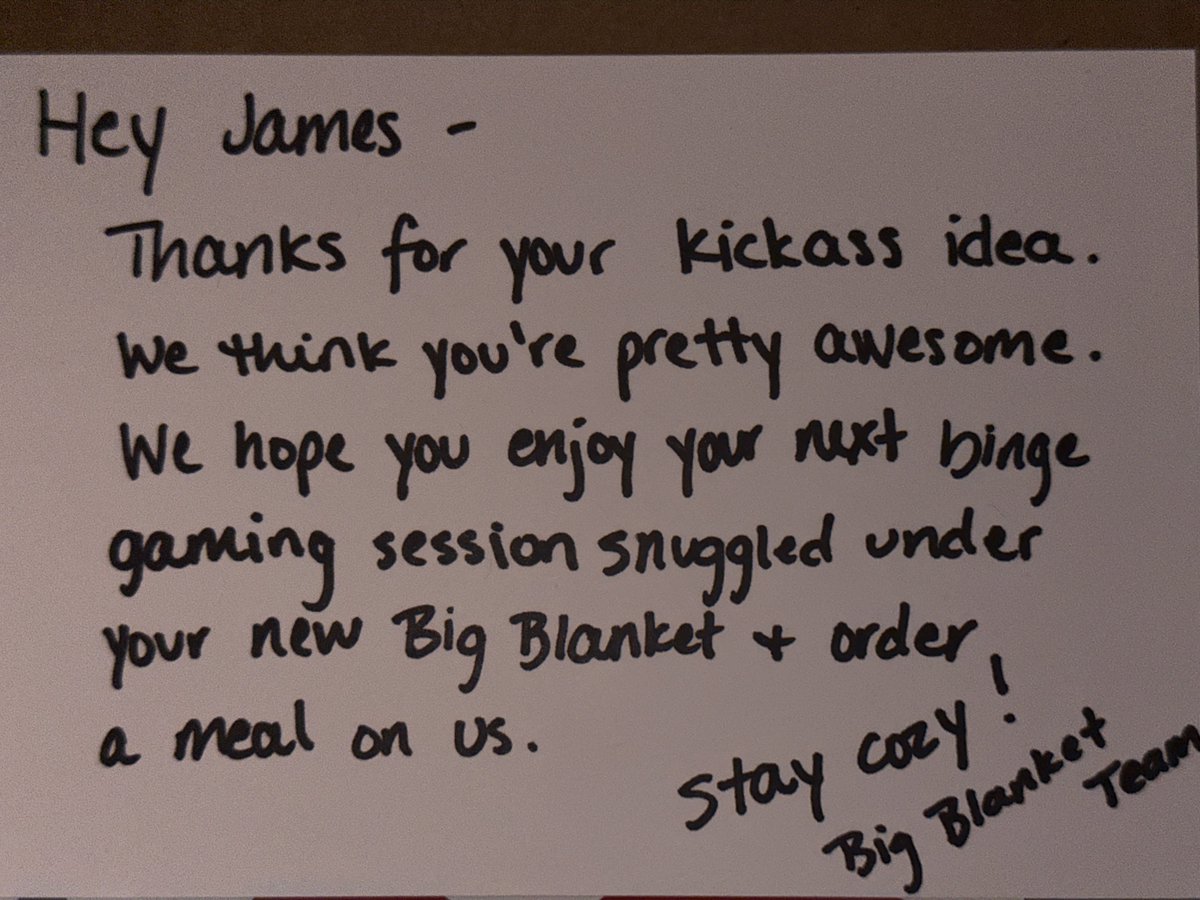 Hey James -
Thanks for your kickass idea.
We think you're pretty awesome.
We hope you enjoy your next binge
gaming session snuggled under
your new Big Blanket + order
a meal on us.
Stay cozy!
Big Blanket
Team